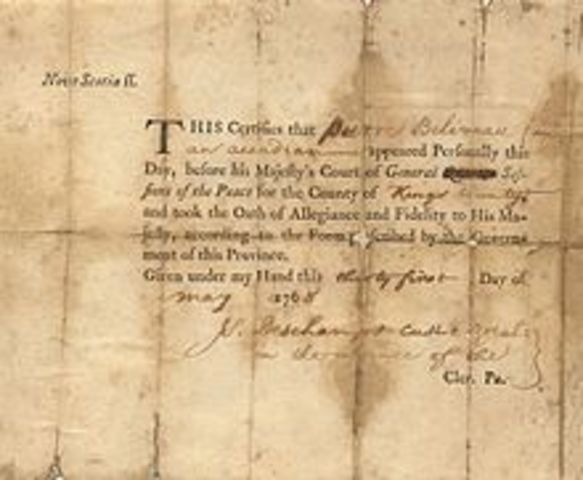 Nova Scotia ss.
THIS Certifies that Pierre Belliveau
an accadian appeared Personally this
Day, before his Majesty's Court of General Ses-
sions of the Peace for the County of Kings County
and took the Oath of Allegiance and Fidelity to His Ma-
jesty, according to the Form scribed by the Govern-
ment of this Province.
Given under my Hand this thirty first Day of
may 1768
Deschamps
of the
Cler. Pa.